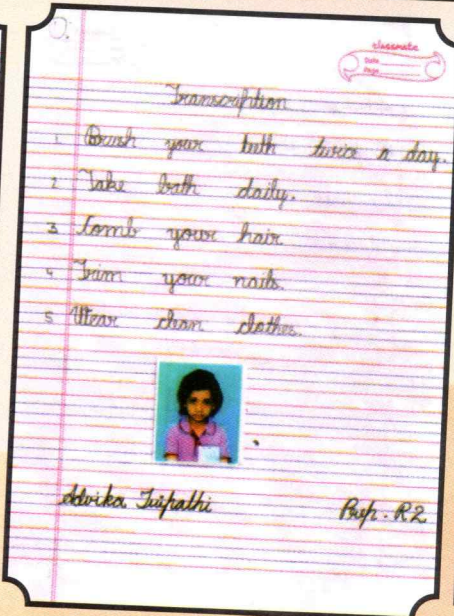 classmate
Date
Page
Transcription
1 Brush your teeth twice a day.
2 Take bath daily.
3 Comb your hair
4 Trim your nails.
5 Wear clean clothes.
Advika Tripathi Prep. R2